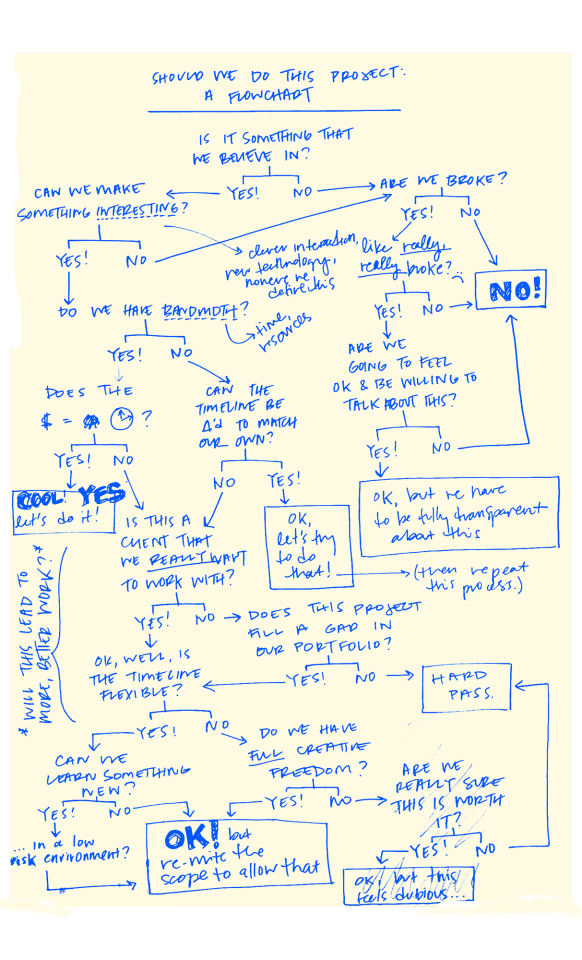 SHOULD WE DO THIS PROJECT:
A FLOWCHART
IS IT SOMETHING THAT
WE BELIEVE IN?
YES! NO
CAN WE MAKE
SOMETHING INTERESTING?
YES! NO
clever interaction,
new technology,
nonever we
define this
ARE WE BROKE?
YES! NO
like really,
really broke?
YES! NO
NO!
DO WE HAVE BANDWIDTH?
time,
resources
YES! NO
ARE WE
GOING TO FEEL
OK & BE WILLING TO
TALK ABOUT THIS?
YES! NO
OK, but we have
to be fully transparent
about this
DOES THE
$ = ?
YES! NO
COOL! YES
let's do it!
CAN THE
TIMELINE BE
Δ'd TO MATCH
OUR OWN?
NO YES!
OK,
let's try
to do
that!
(then repeat
this process.)
IS THIS A
CLIENT THAT
WE REALLY WANT
TO WORK WITH?
YES! NO
DOES THIS PROJECT
FILL A GAP IN
OUR PORTFOLIO?
YES! NO
HARD
PASS.
* WILL THIS LEAD TO
MORE, BETTER WORK? *
OK, WELL, IS
THE TIMELINE
FLEXIBLE?
YES! NO
CAN WE
LEARN SOMETHING
NEW?
YES! NO
... in a low
risk environment?
DO WE HAVE
FULL CREATIVE
FREEDOM?
YES! NO
OK! but
re-write the
scope to allow that
ARE WE
REALLY SURE
THIS IS WORTH
IT?
YES! NO
ok, but this
feels dubious...